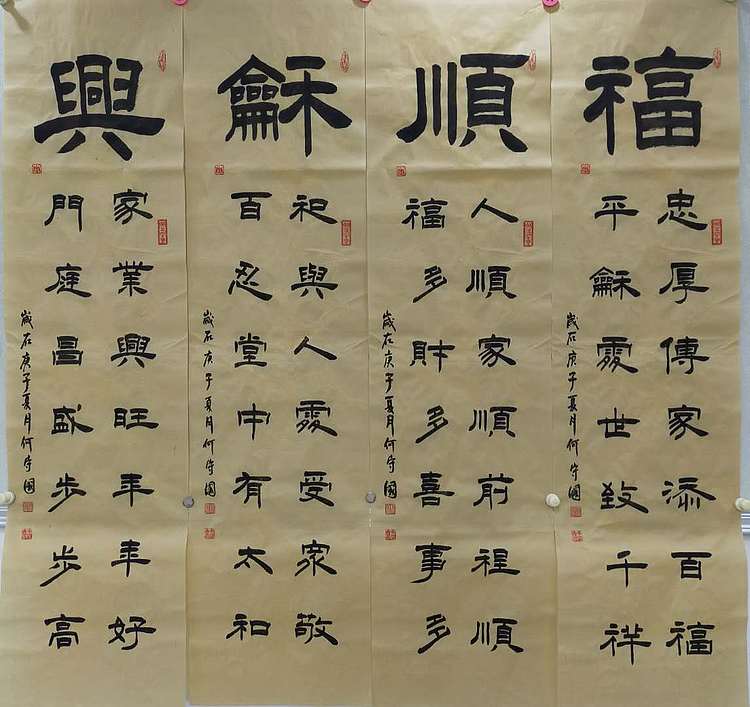 福
忠厚傳家添百福
平龢處世致千祥
歲在庚子夏月何守國
順
人順家順前程順
福多財多喜事多
歲在庚子夏月何守國
龢
和與人處受衆敬
百忍堂中有太和
歲在庚子夏月何守國
興
家業興旺年年好
門庭昌盛步步高
歲在庚子夏月何守國